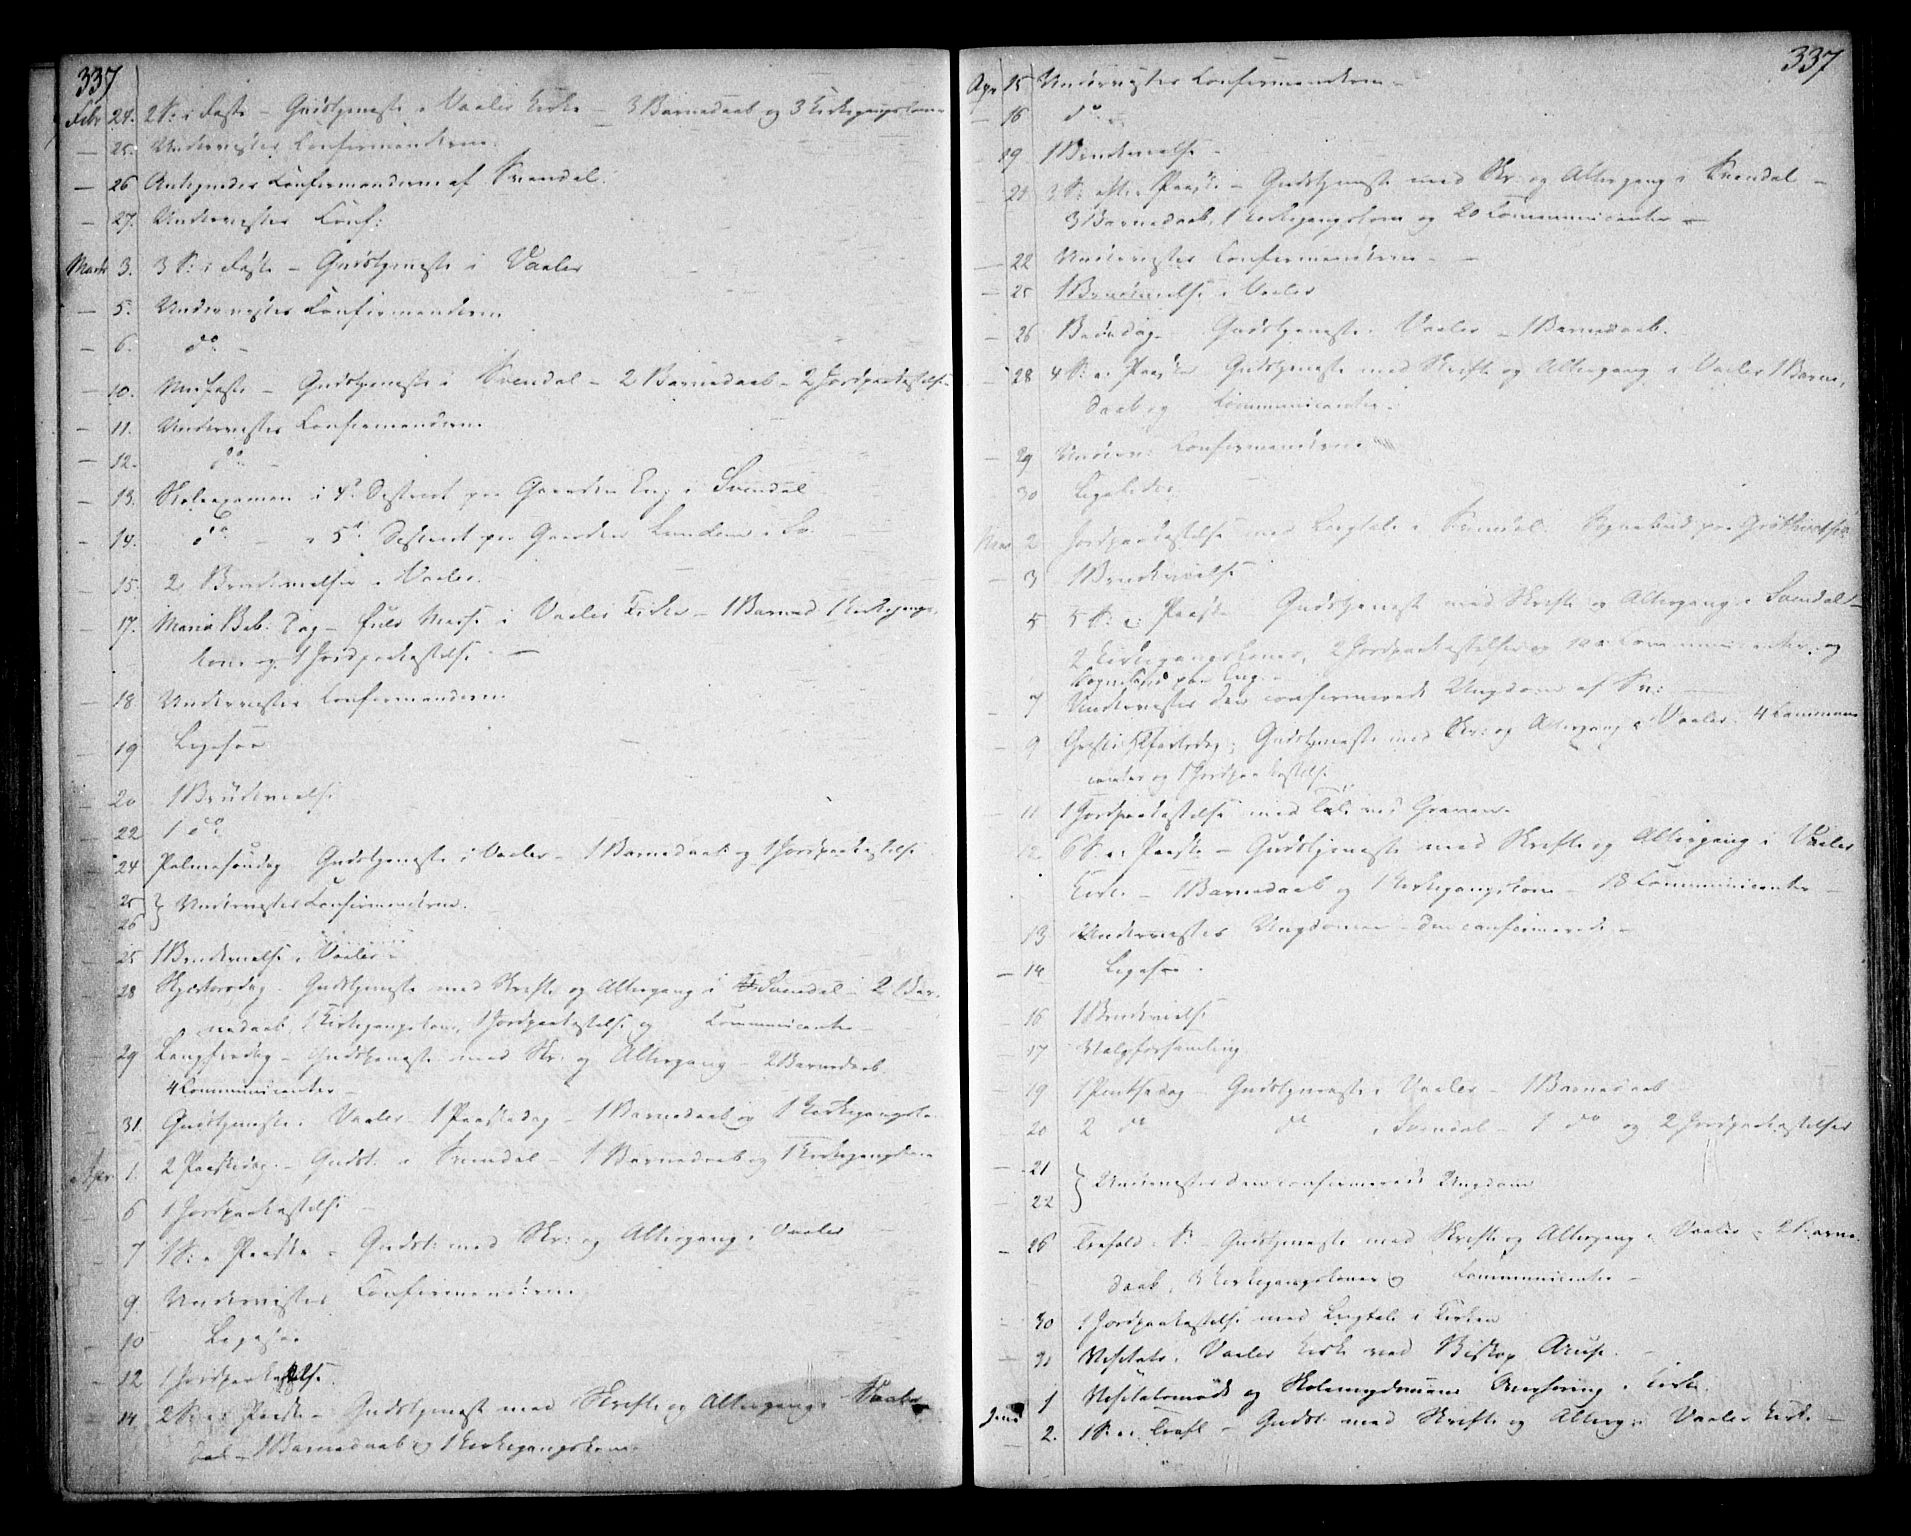 337
Febr 24. 2 S: i Faste – Gudstjeneste i Vaaler Kirke – 3 Barnedaab og 3 Kirkegangskoner
— 25. Underviister Confirmanderne.
— 26 Antegnedes Confirmanderne af Svendal.
— 27. Underviister Conf:
Marts 3. 3 S: i Faste – Gudstjeneste i Vaaler
— 5. Underviister Confirmanderne
— 6. do –
— 10. Midfaste – Gudstjeneste i Svendal – 2 Barnedaab – 2 Jordpaakastelse
— 11. Underviister Confirmanderne
— 12. do –
— 13. Skoleexamen i 4de District paa Gaarden Eng i Svendal
— 14. do – i 5te District paa Gaarden Lunden i Sv
— 15. 2 Brudevielser i Vaaler.
— 17. Mariæ Beb: Dag – Messe i Vaaler Kirke – 1 Barned. 1 Kirkegangs
kone og 1 Jordpaakastelse –
— 18 Underviister Confirmanderne
— 19 Ligesaa
— 20 1 Brudevielse
— 22 1 do
24 Palmesøndag Gudstjeneste i Vaaler – 1 Barnedaab og 1 Jordpaakastelse
25 } Underviister Confirmanderne.
26
25 1 Brudevielse i Vaaler –
28 Skjærtorsdag – Gudstjeneste med Skrifte og Altergang i Svendal – 2 Bar-
nedaab, 1 Kirkegangskone, 1 Jordpaakastelse og Communicanter –
— 29 Langfredag – Gudstjeneste med Skr: og Altergang – 2 Barnedaab.
4 Communicanter –
31. Gudstjeneste i Vaaler 1 Paaskedag – 1 Barnedaab og 1 Kirkegangsko-
Apr. 1. 2 Paaskedag – Gudst. i Svendal – 1 Barnedaab og 1 Kirkegangskone
6 1 Jordpaakastelse –
— 7 1 S: e Paaske – Gudst: med Skr: og Altergang i Vaaler
9. Underviister Confirmanderne
— 10 Ligesaa
— 12 1 Jordpaakastelse.
14. 2 S: e: Paaske – Gudstjeneste med Skrifte og Altergang i
dal – 1 Barnedaab og 1 Kirkegangskone.
337
Apr 15 Underviister Confirmanderne –
— 16 do
— 19 1 Brudevielse –
— 21 3 S: efter Paaske – Gudstjeneste med Skr: og Altergang i Svendal –
3 Barnedaab, 1 Kirkegangskone og 20 Communicanter –
— 22 Underviister Confirmanderne –
— 25 1 Brudevielse i Vaaler
— 26 Bededag – Gudstjeneste i Vaaler – 1 Barnedaab.
— 28 4 S: e: Paaske Gudstjeneste med Skrifte og Altergang i Vaaler 1 Barne-
daab og Communicanter –
— 29 Underv: Confirmanderne
30 Ligeledes
2 Jordpaakastelse med Liigtale i Svendal.
— 3 1 Brudevielse
5 5 S: e: Paaske – Gudstjeneste med Skrifte og Altergang i Svendal –
2 Kirkegangskoner, 2 Jordpaakastelser og Communicanter og
paa Eng –
— 7 Underviister den confirmerede Ungdom af Sv: –
— 9 Christi Himmelfartsdag; Gudstjeneste med Skr: og Altergang i Vaaler 4 Communi-
canter og 1 Jordpaakastelse
— 11 1 Jordpaakastelse med Tale ved Graven –
12 6 S: e: Paaske – Gudstjeneste med Skrifte og Altergang i Vaaler
Kirke – 1 Barnedaab og 1 Kirkegangskone – 18 Communicanter –
13 Underviister Ungdommen den confirmerede –
— 14 Ligesaa –
— 16 1 Brudevielse
— 17 Valgforsamling
— 19 1 Pintsedag – Gudstjeneste i Vaaler – 1 Barnedaab
20 2 do do i Svendal – 1 do og 2 Jordpaakastelser
— 21 } Underviister den confirmerede Ungdom
22
— 26 Trefold: S: – Gudstjeneste med Skrifte og Altergang i Vaaler – 2 Barne-
daab, 3 Kirkegangskoner og Communicanter –
30 1 Jordpaakastelse med Liigtale i Kirken
— 31 Visitats i Vaaler Kirke ved Biskop Arup. –
Juni 1 Visitatsmøde og i Kirke.
— 2. 1 S: e: Trefl – Gudst: med Skrifte og Alterg: i Vaaler Kirke –